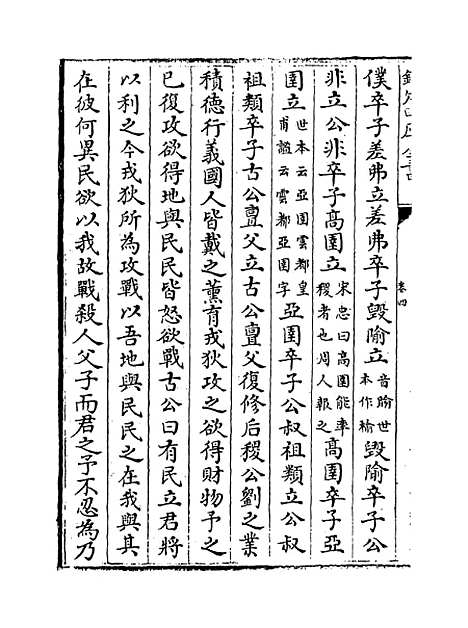 欽定四庫全書
卷四
僕卒子差弗立差弗卒子毀隃立音隃世本作榆毀隃卒子公
非立公非卒子高圉立宋忠曰高圉能率稷者也周人報之高圉卒子亞
圉立世本云亞圉雲都皇甫謐云雲都亞圉字亞圉卒子公叔祖類立公叔
祖類卒子古公亶父立古公亶父復修后稷公劉之業
積德行義國人皆戴之薰育戎狄攻之欲得財物予之
已復攻欲得地與民民皆怒欲戰古公曰有民立君將
以利之今戎狄所為攻戰以吾地與民民之在我與其
在彼何異民欲以我故戰殺人父子而君之予不忍為乃